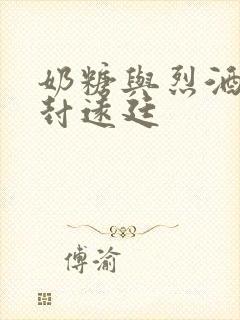 奶糖與烈酒
封遠廷
傅渝